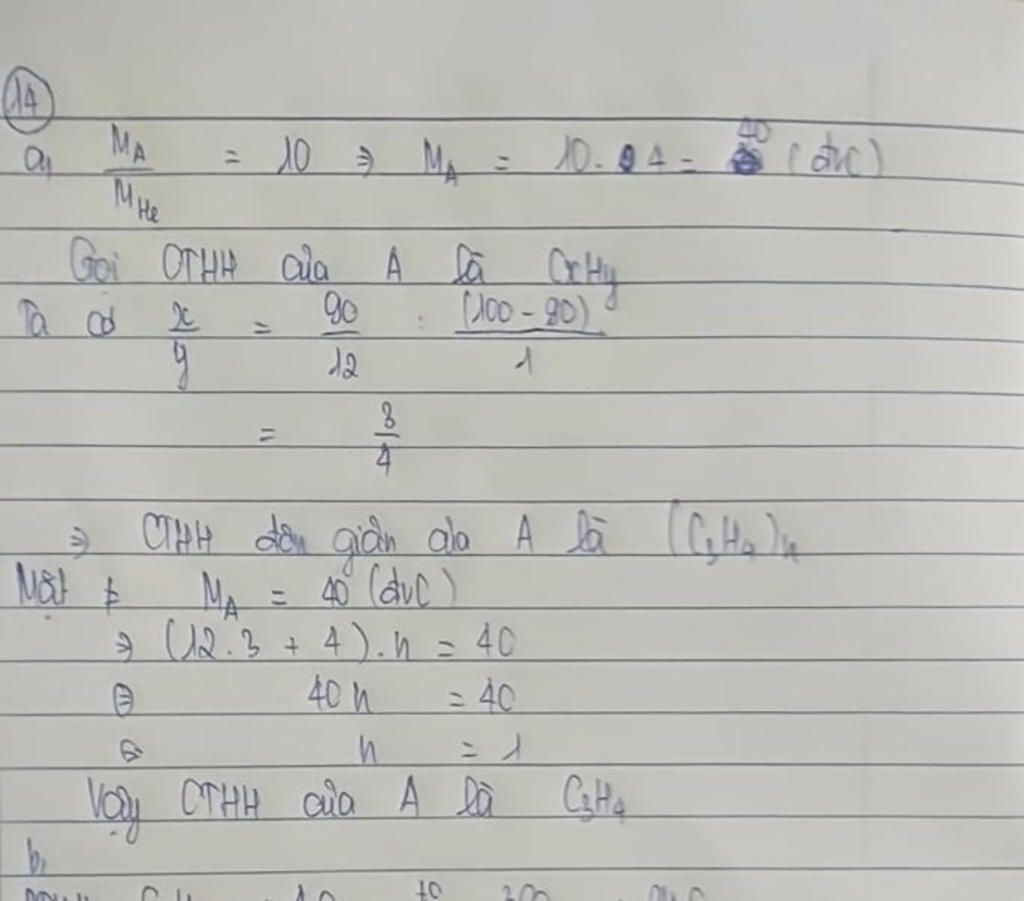 14
a, M_A / M_He = 10 ⇒ M_A = 10. 4 = 40 (đvC)
Gọi CTHH của A là CxHy
Ta có x/y = 90/12 : (100 - 90)/1
= 3/4
⇒ CTHH đơn giản của A là (C₃H₄)n
Mặt ≠ M_A = 40 (đvC)
⇒ (12.3 + 4).n = 40
⇔ 40n = 40
⇔ n = 1
Vậy CTHH của A là C₃H₄
b,